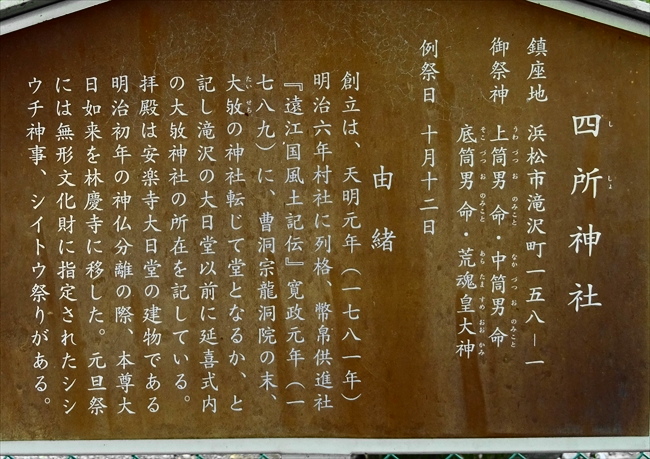 四所神社
ししょ
鎮座地 浜松市滝沢町一五八－一
御祭神 上筒男命・中筒男命
うわづつおのみこと なかづつおのみこと
底筒男命・荒魂皇大神
そこづつおのみこと あらたますめおおかみ
例祭日 十月十二日
由緒
創立は、天明元年（一七八一年）
明治六年村社に列格、幣帛供進社
『遠江国風土記伝』寛政元年（一
七八九）に、曹洞宗龍洞院の末、
大敓の神社転じて堂となるか、と
たいせち
記し滝沢の大日堂以前に延喜式内
の大敓神社の所在を記している。
拝殿は安楽寺大日堂の建物である
明治初年の神仏分離の際、本尊大
日如来を林慶寺に移した。元旦祭
には無形文化財に指定されたシシ
ウチ神事、シイトウ祭りがある。